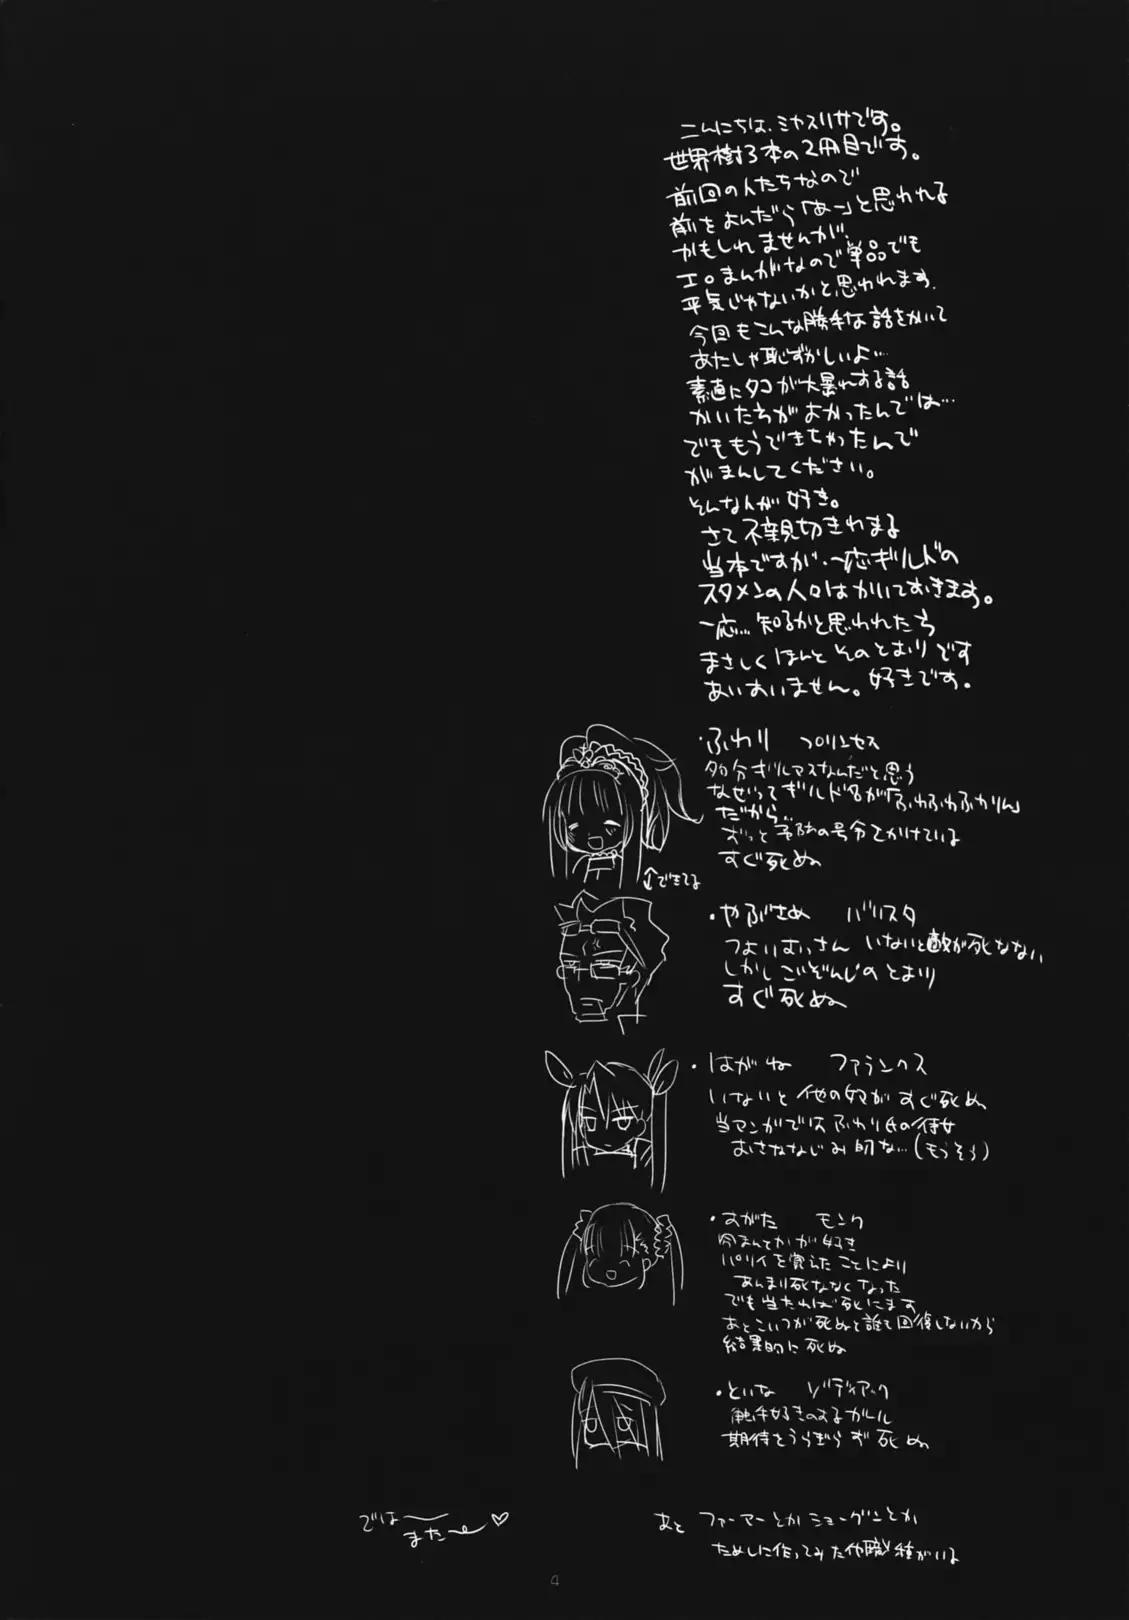 こんにちは、ミヤスリサです。
世界樹3本の2冊目です。
前回の人たちなので
前をよんだら「あー」と思われる
かもしれませんが、
エロまんがなので単品でも
平気じゃないかと思われます。
今回もこんな勝手な話をかいて
あたしゃ恥ずかしいよ…
素直にタコが大暴れする話
かいたらがよかったんでは…
でももうできちゃったんで
がまんしてください。
そんな人が好き。
さて不親切きわまる
当本ですが、一応ギルドの
スタメンの人々はかいておきます。
一応…知るかと思われたら
まさしくほんとそのとおりです
あいすいません。好きです。
・ふわり プリンセス
多分ギルマスなんだと思う
なぜってギルド名が「ふわふわふかりん」
だから…
ずっと予防の号令をかけている
すぐ死ぬ
↕できてる
・やぶさめ バリスタ
つよいおっさん いないと敵が死なない
しかしごぞんじのとおり
すぐ死ぬ
・はがね ファランクス
いないと他の奴がすぐ死ぬ
当マンガではふわり氏の侍女
おさななじみ的な…(もうそう)
・すがた モンク
肉まんとかが好き
パリイを覚えたことにより
あんまり死ななくなった
でも当たれば死にます
あとこいつが死ぬと誰も回復しないから
結果的に死ぬ
・といな ゾディアック
触手好きのするガール
期待をうらぎらず死ぬ
あと ファーマーとかショーグンとか
ためしに作ってみた他職種がいる
では
また〜♡
4